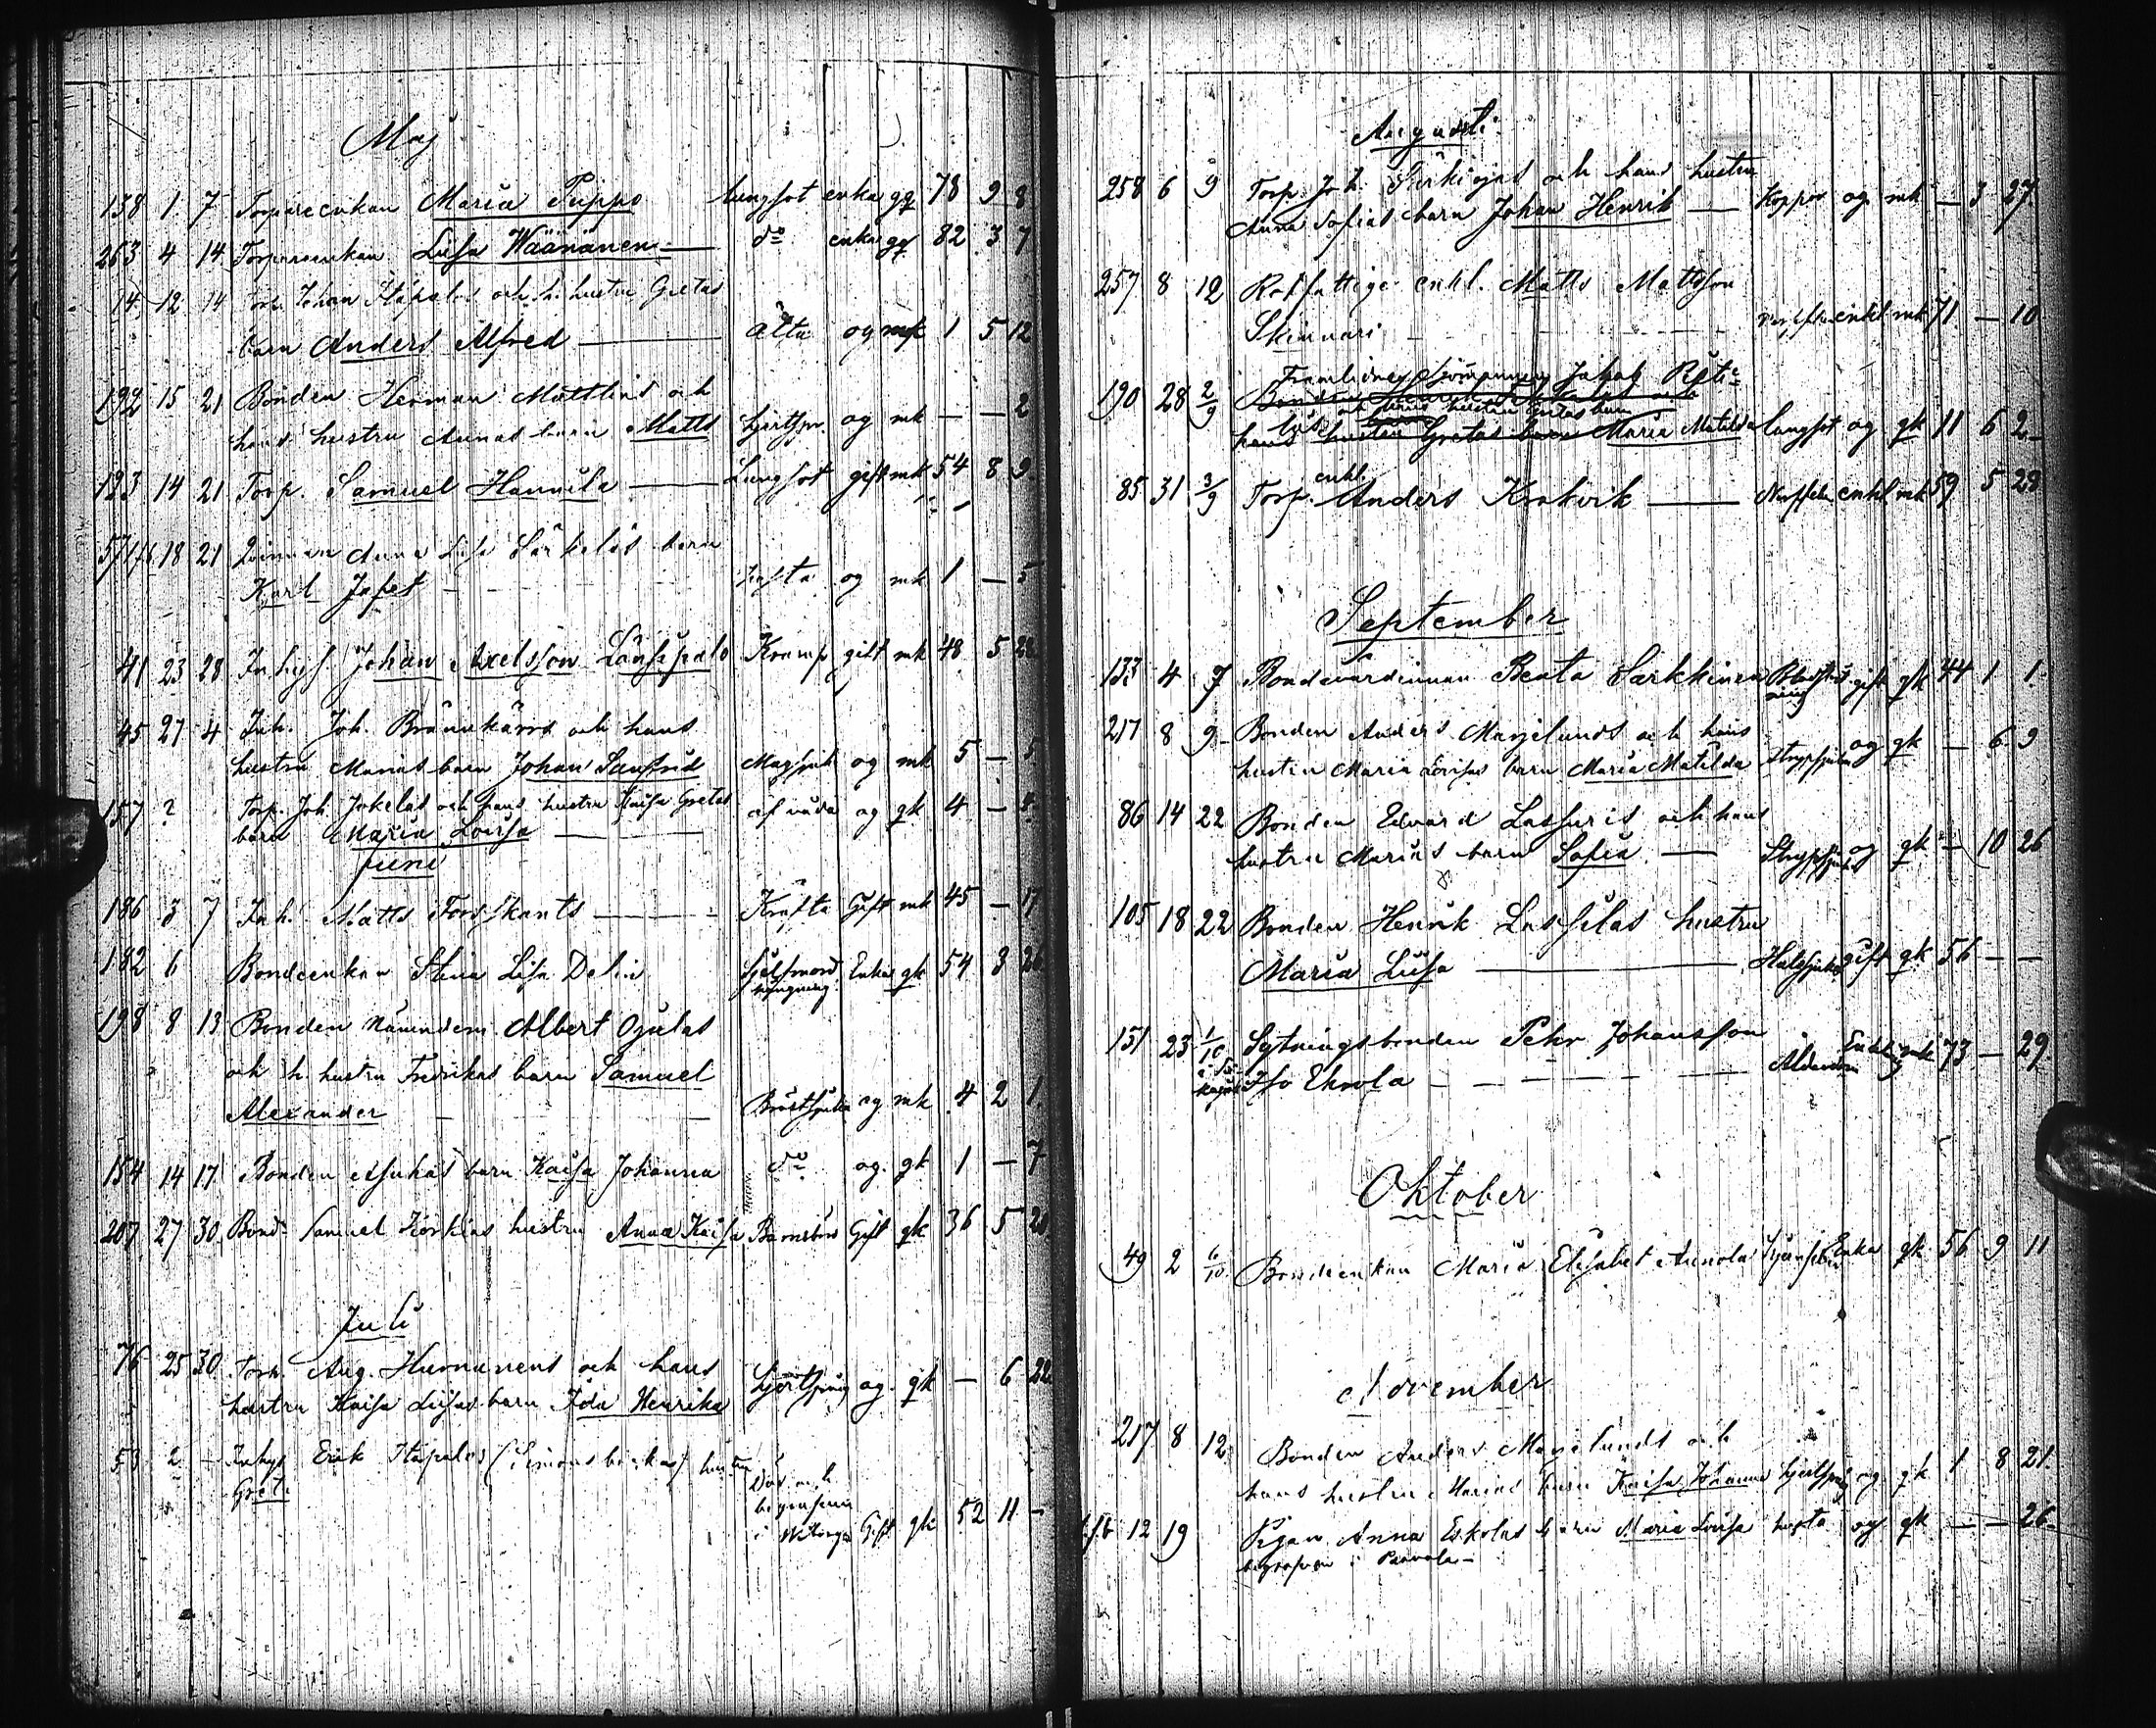 Maj
138 1 7 Torpareenkan Maria Puppo lungsot enka gq 78 9 8
263 4 14 Torpareenkan Liisa Wäänänen — do enka gq 82 3 7
14 12 14 Torp. Johan Itäpalos och h. hustru Gretas
barn Anders Alfred — ålta og mk 1 5 12
192 15 21 Bonden Herman Mattlins och
hans hustru Annas barn Matts hjertspr. og mk — — 2
123 14 21 Torp. Samuel Hannila — Lungsot gift mk 54 8 9
18 21 Qvinnan Anna Lisa Särkelas barn
Karl Jafet hosta og mk 1 — 5
41 23 28 Inhys. Johan Axelsson Länsipalo Kramp gift mk 48 5 28
45 27 4 Inh. Joh. Brännkärrs och hans
hustru Marias barn Johan Sanfrid Magsjuk og mk 5 — 5
157 ? Torp. Joh. Jokelas och hans hustru Kaisa Gretas
barn Maria Lovisa — af våda og qk 4 —
Juni
186 3 7 Inh. Matts Fordskants Kräfta Gift mk 45 — 17
182 6 Bondeenkan Stina Lisa Delin Sjelfmord Enka qk 54 3 26
hängning
198 8 13 Bonden Nämndem. Albert Ojalas
och h. hustru Fredrikas barn Samuel
Alexander — Bröstsjuka og mk 4 2 1
154 14 17 Bonden barn Kaisa Johanna do og. qk 1 — 7
207 27 30 Bond. Samuel hustru Anna Kaisa Barnsbörd Gift qk 36 5
Juli
76 25 30 Torp. Aug. Hurnanens och hans
hustru Kaisa Liisas barn Ida Henrika hjertspr. og. qk — 6 22
53 2 — Inhys Erik Itäpalos (Simons backa) hustru
Greta Död och
begrafven
i Wetings Gift qk 52 11 —
Augusti
258 6 9 Torp. Joh. Särkiojas och hans hustru
Anna Sofias barn Johan Henrik — Koppor og mk — 3 27
257 8 12 Rotfattige enkl. Matts Mattsson
Skinnari enkl mk 71 — 10
Framlidne Sjömannen Jakob
190 28 2/9 Bonden Henrik
och hans hustru Gretas barn
hans hustru Gretas barn Maria Matilda lungsot og qk 11 6 2
enkl.
85 31 3/9 Torp. Anders Krokvik — enkl mk 59 5 28
September
133 4 7 Bondevärdinnan Beata Särkkinen gift qk 44 1 1
217 8 9 Bonden Anders Marjelunds och hans
hustru Maria Lovisas barn Maria Matilda Strypsjuka og qk — 6 9
86 14 22 Bonden Edvard Lassuris och hans
hustru Marias barn Sofia — Strypsjuka og qk — 10 26
105 18 22 Bonden Henrik Lassilas hustru
Maria Liisa — Halssjuka gift qk 56 — —
151 23 1/10 Sytningsbonden Pehr Johansson
Iso Ekvola — Ålderdom Enkl. mk 73 — 29
Oktober
49 2 6/10 Bondeenkan Maria Elisabet Annola Enka qk 56 9 11
November
217 8 12 Bonden Anders Marjelunds och
hans hustru Marias barn Kaisa Johanna hjertspr. og qk 1 8 21
12 19 Pigan Anna Eskolas barn Maria Lovisa hosta og qk — — 26
begrafven i Paavola —